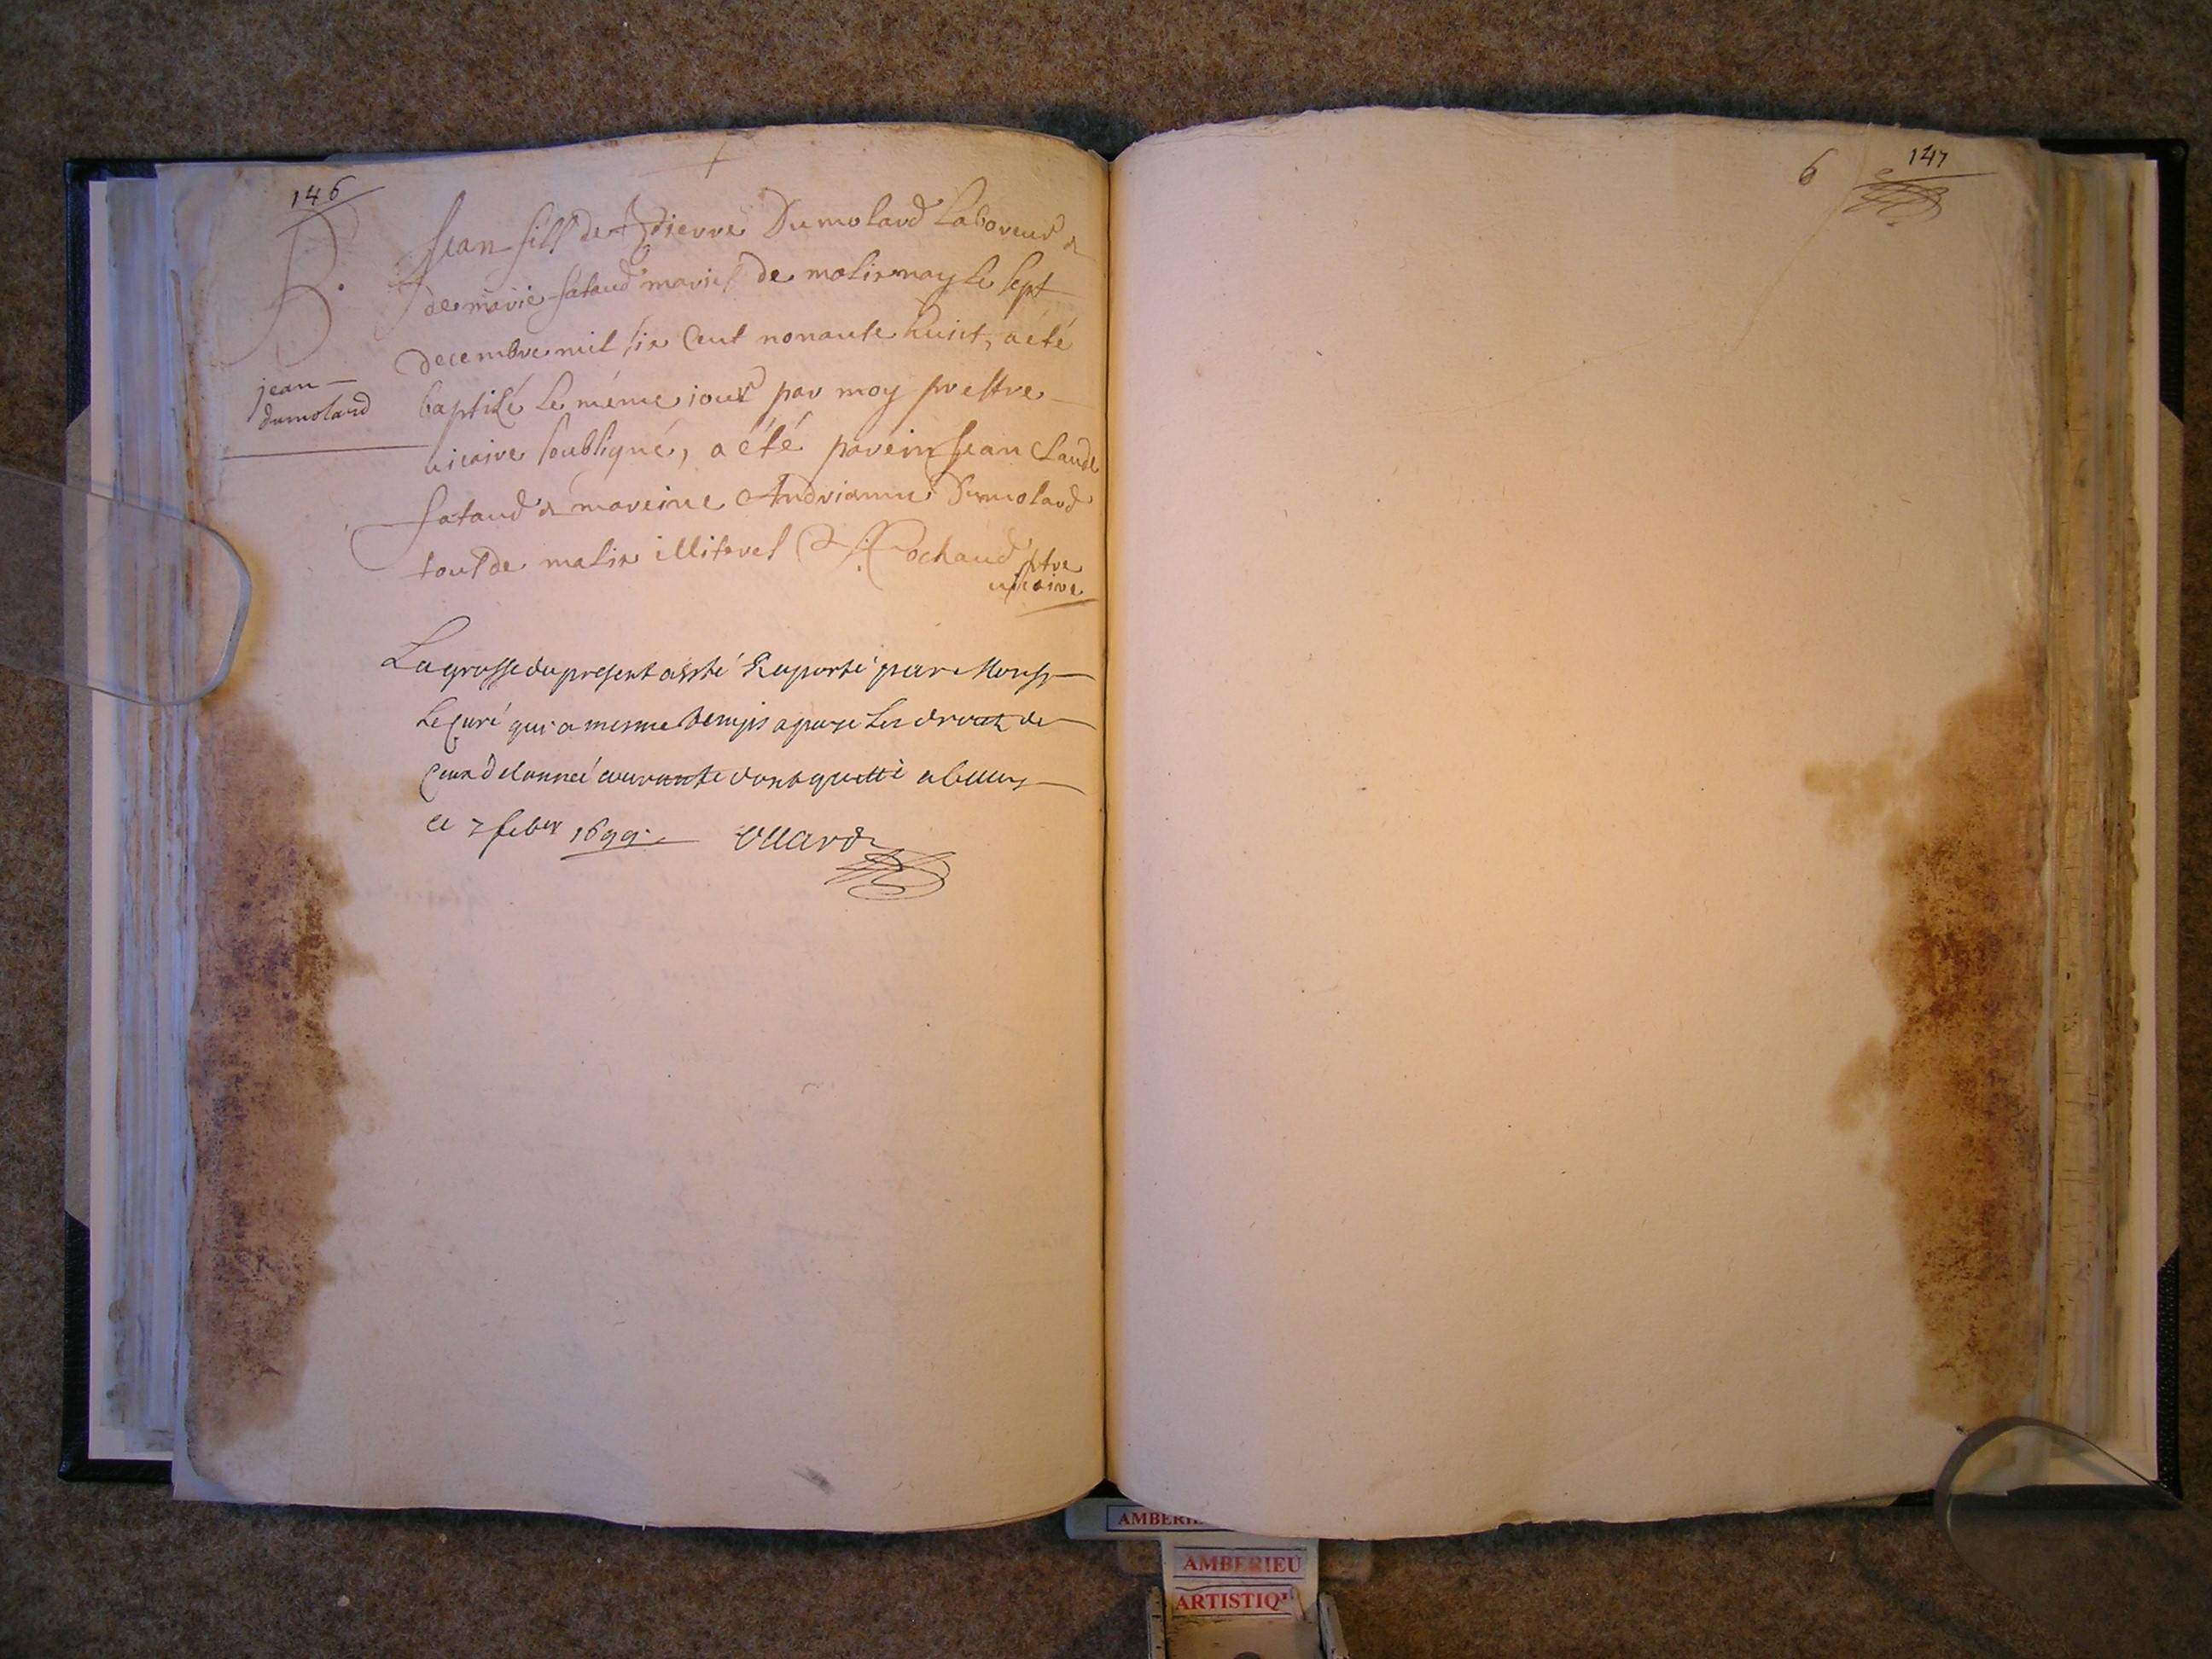 146
B.
Jean fils de Pierre Dumolard Laboreur &
de marie fataud mariés de molir nay le sept
decembre mil six Cent nonante huict, a été
baptisé le méme iour par moy prestre
vicaire soubsigné, a été parein Jean Claude
fataud & mareine Andrianne Dumolard
tous de molir illiterés Rochaud ptre
vicaire
jean
dumolard
La grosse du present a esté Raporté par Monsr
Le Curé qui a mesme temps a paye Les droit de
Ceux de lannée courante dont quitté a belley
ce 7 feber 1699.
6
147
AMBERIEU
ARTISTIQ